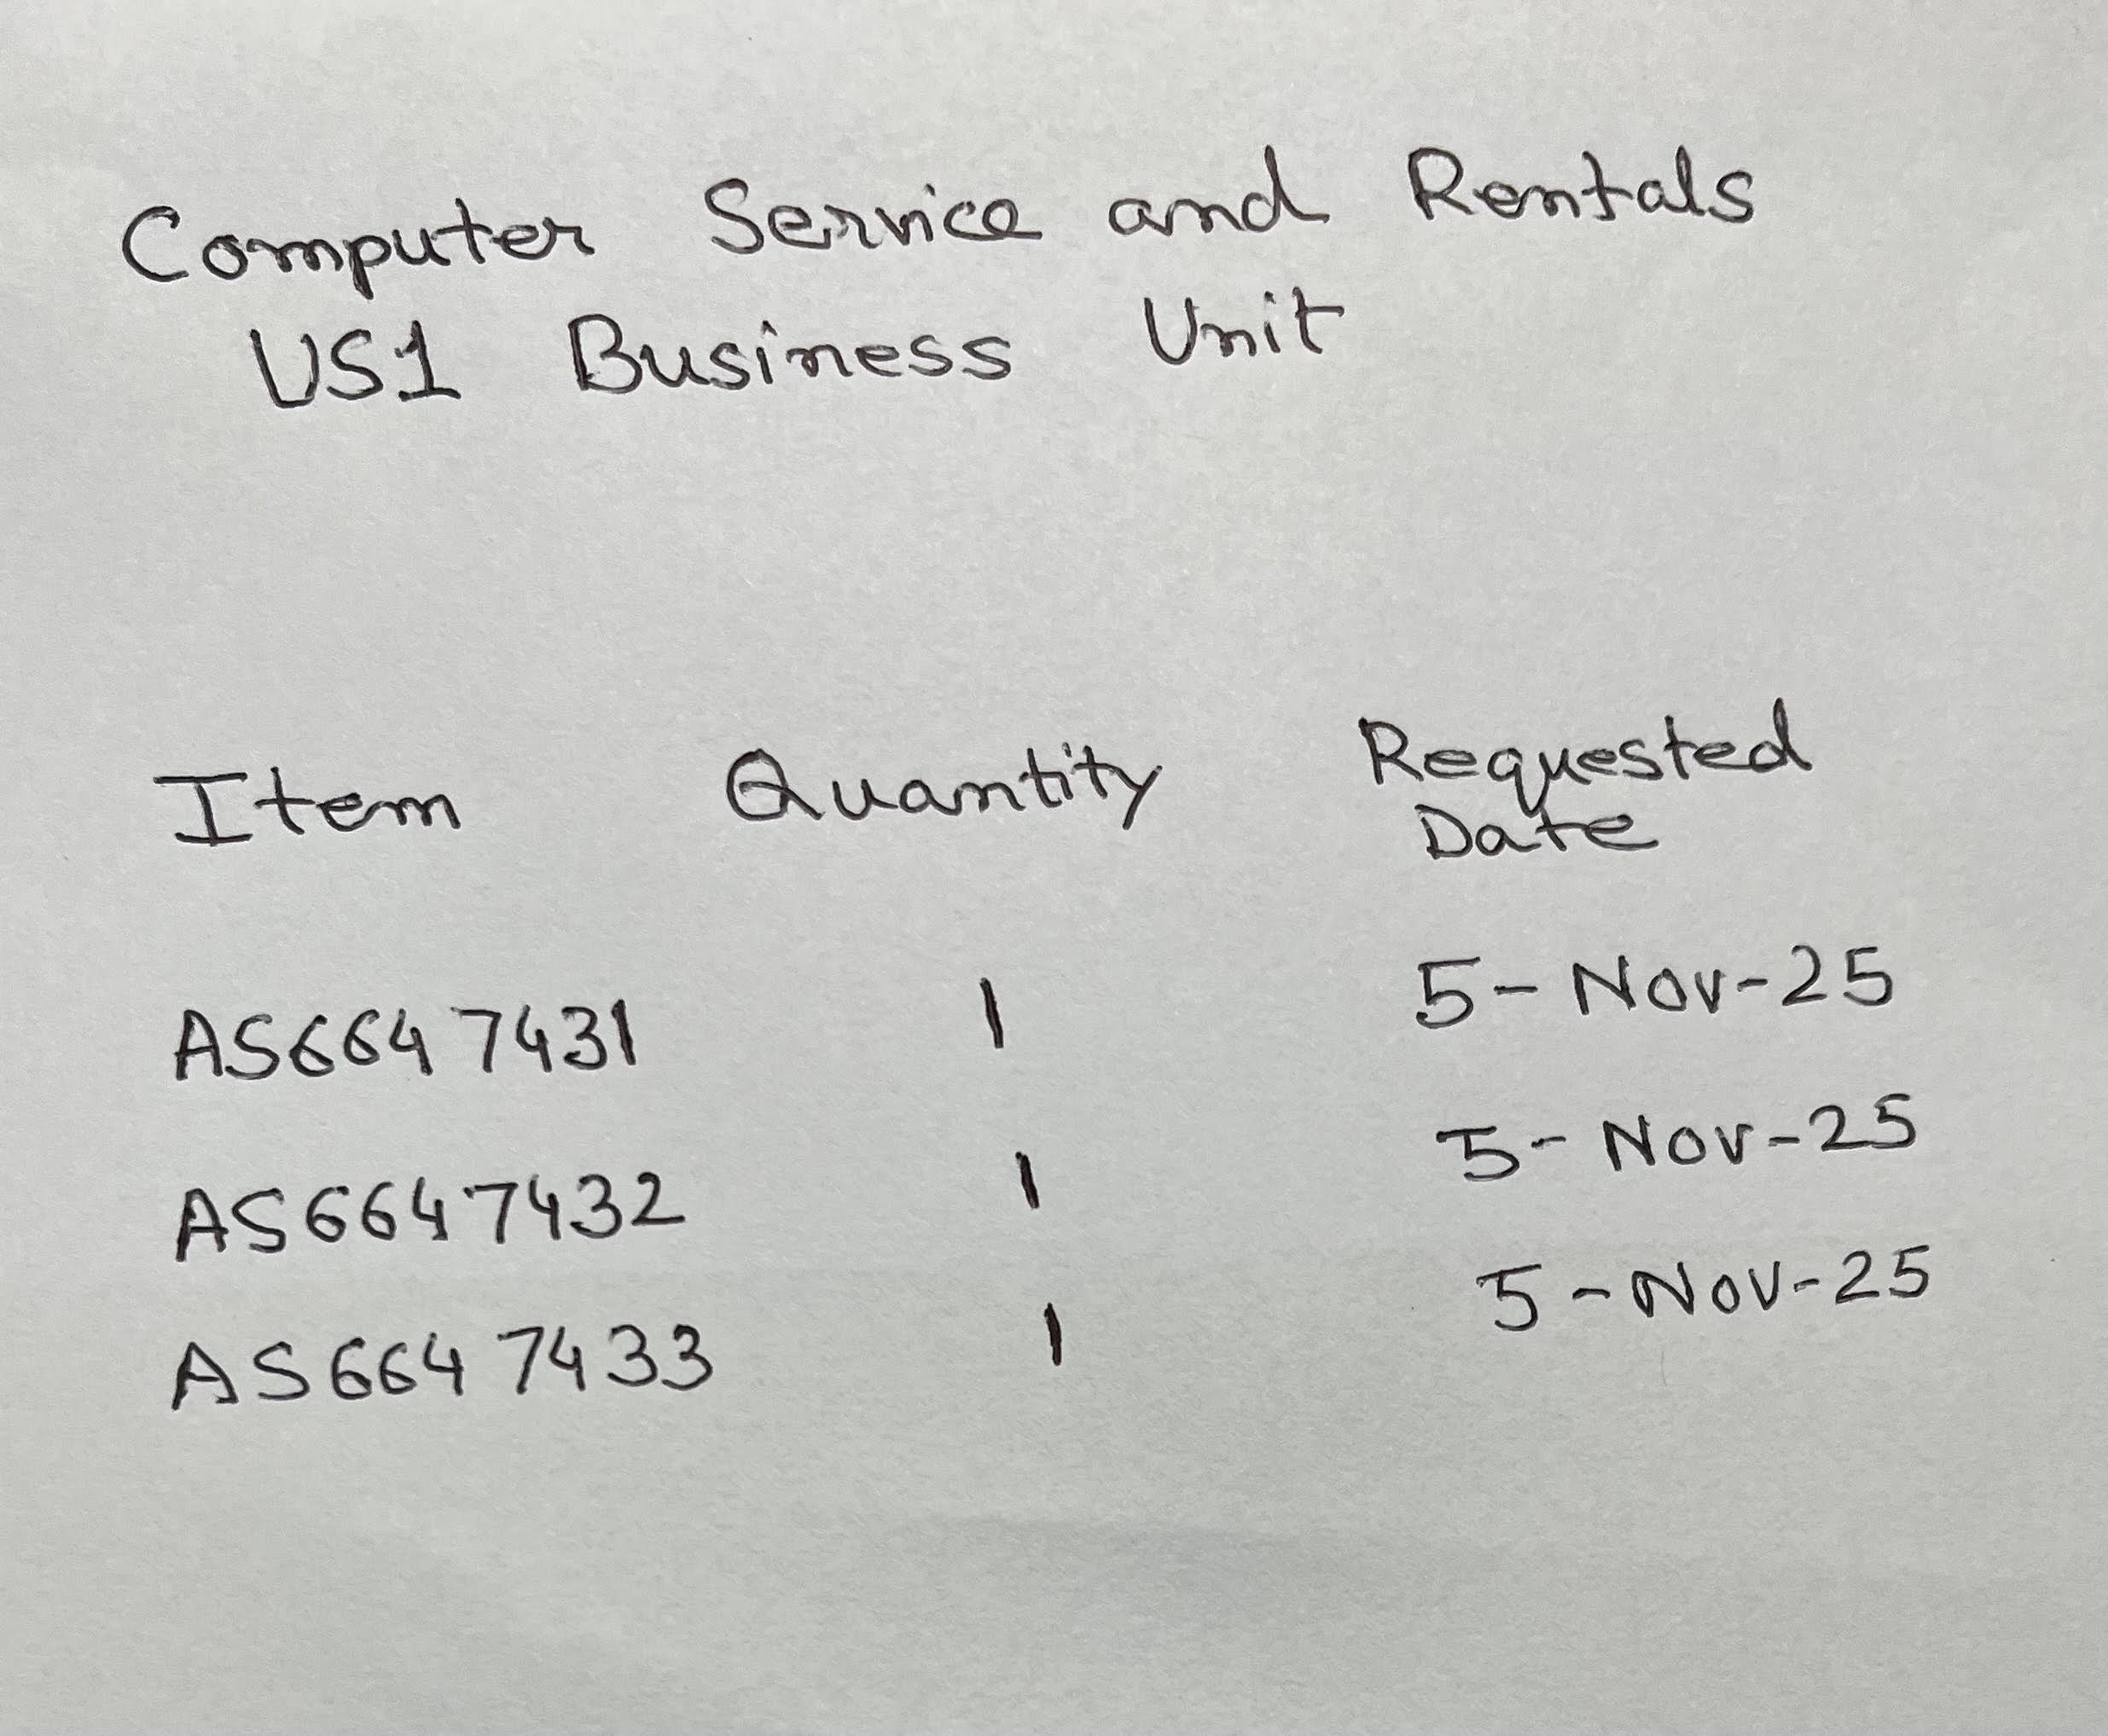 Computer Service and Rentals
US1 Business Unit
Item Quantity Requested Date
AS6647431 1 5-Nov-25
AS6647432 1 5-Nov-25
AS6647433 1 5-Nov-25